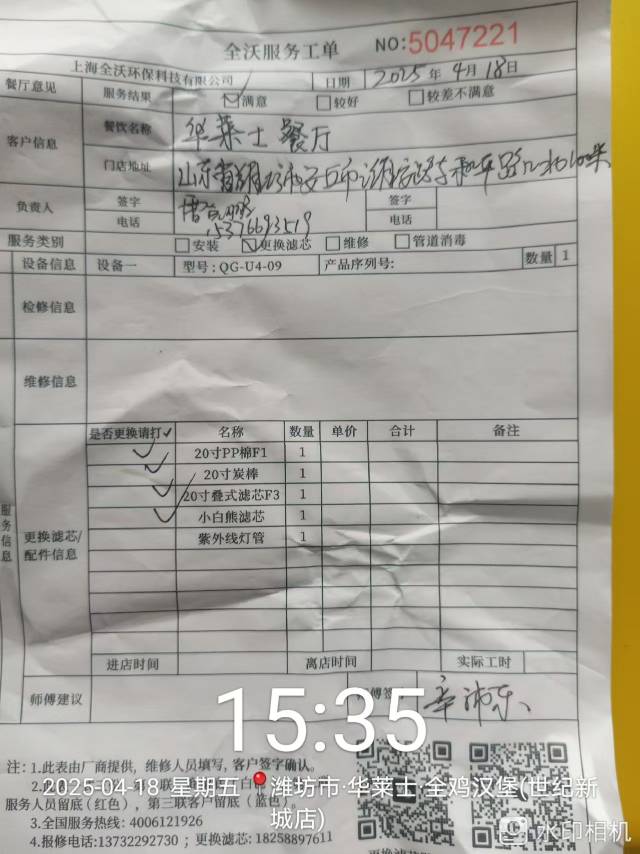 全沃服务工单 NO:5047221
上海全沃环保科技有限公司 日期 2025年4月18日
餐厅意见 服务结果 ☑满意 □较好 □较差不满意
客户信息 餐饮名称 华莱士餐厅
门店地址 山东省
负责人 签字 签字
电话 15376693519 电话
服务类别 □安装 ☑更换滤芯 □维修 □管道消毒
设备信息 设备一 型号:QG-U4-09 产品序列号: 数量 1
检修信息
维修信息
是否更换请打✓ 名称 数量 单价 合计 备注
✓ 20寸PP棉F1 1
✓ 20寸炭棒 1
✓ 20寸叠式滤芯F3 1
✓ 小白熊滤芯 1
紫外线灯管 1
服务信息
更换滤芯/配件信息
进店时间 离店时间 实际工时
师傅建议
15:35
注:1.此表由厂商提供,维修人员填写,客户签字确认。
2025-04-18 星期五 潍坊市·华莱士·全鸡汉堡(世纪新城店)
服务人员留底(红色),第三联客户留底(蓝色)。
3.全国服务热线:4006121926
4.报修电话:13732292730;更换滤芯:18258897611
水印相机